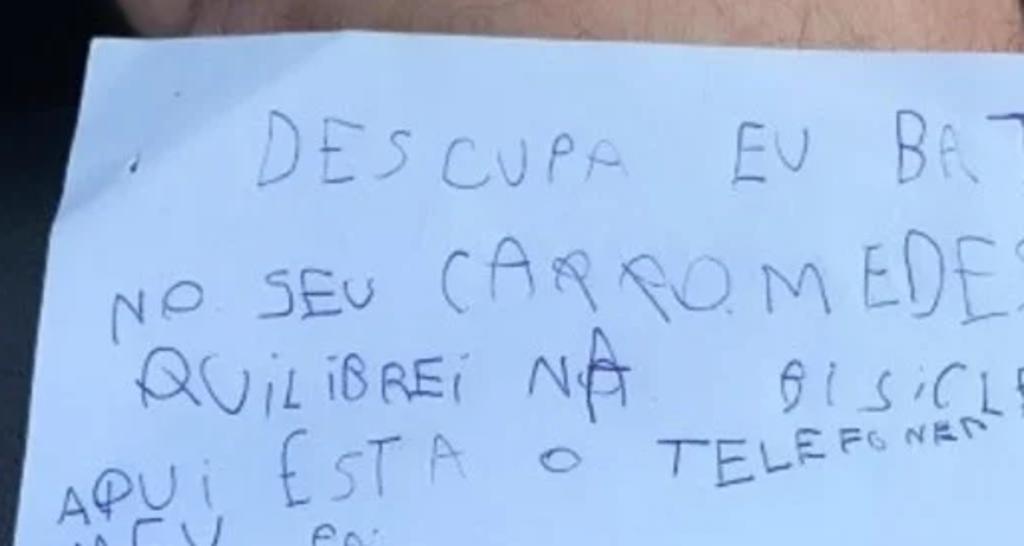 DESCUPA EU BAT
NO SEU CARRO.MEDES
QUiLiBREi NA BISiCLE
AQUi ESTA O TELEFONE
MEU PAi